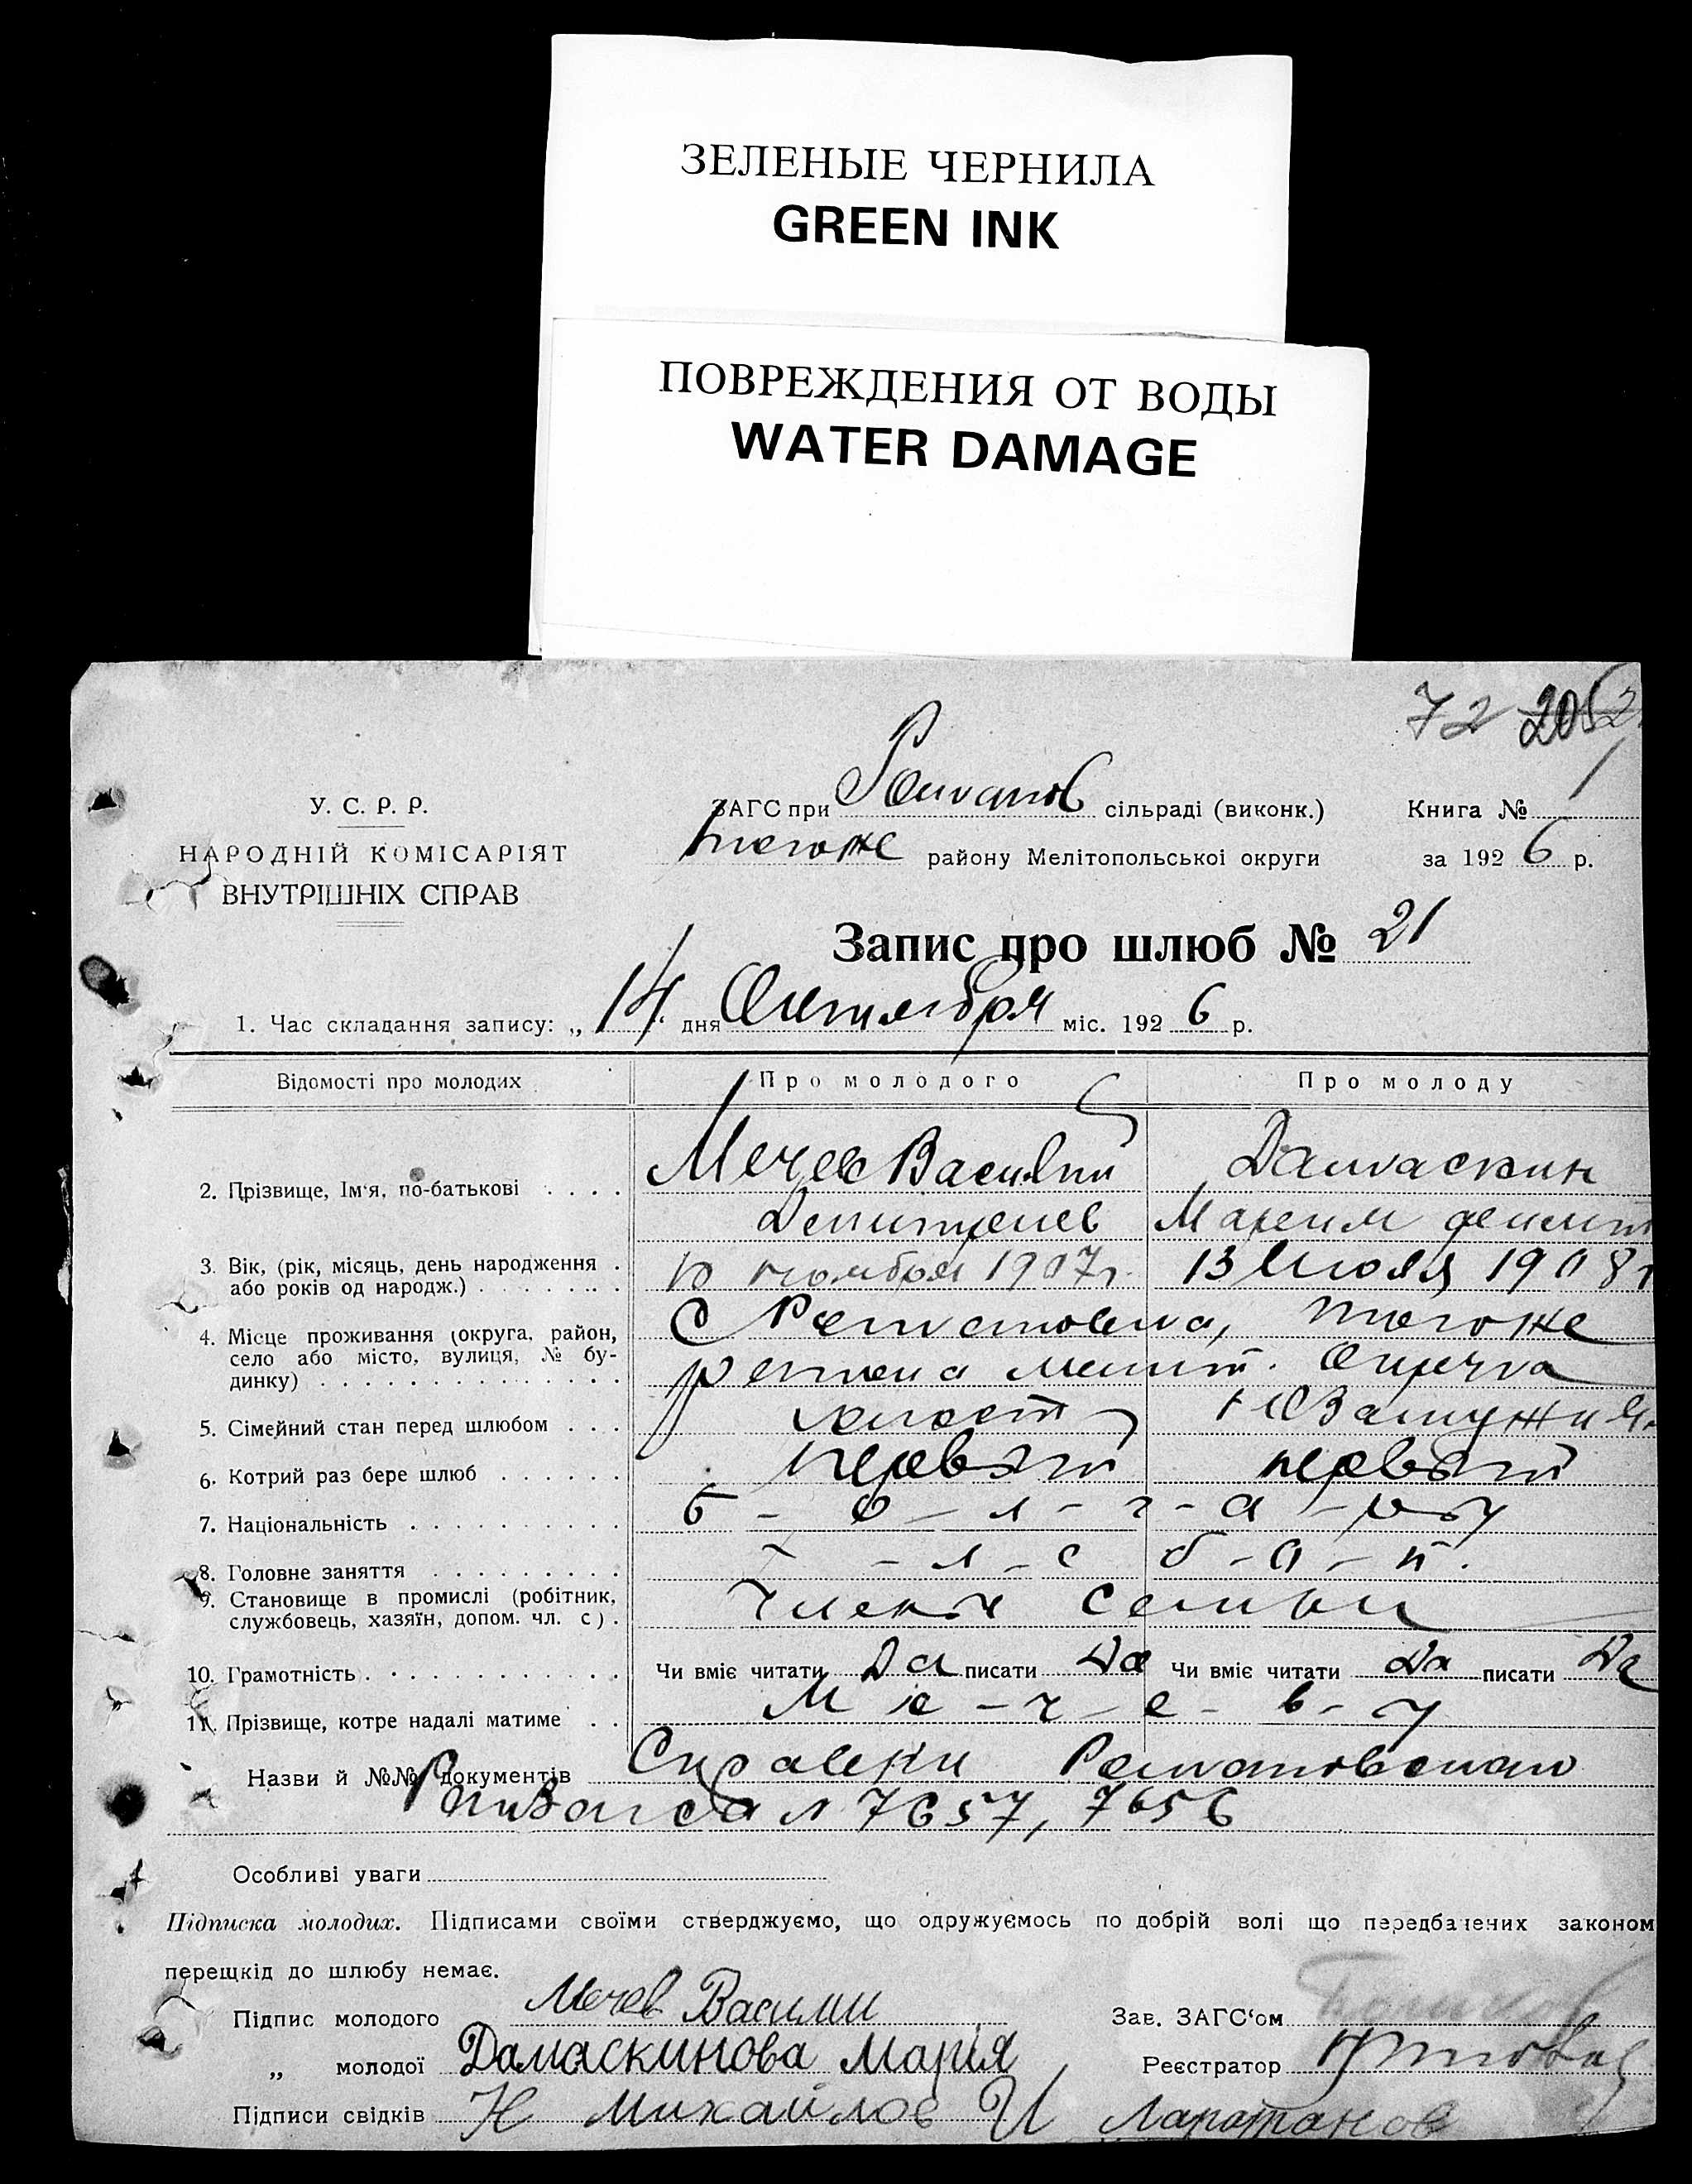 ЗЕЛЕНЫЕ ЧЕРНИЛА
GREEN INK
ПОВРЕЖДЕНИЯ ОТ ВОДЫ
WATER DAMAGE
72
У. С. Р. Р.
НАРОДНІЙ КОМІСАРІЯТ
ВНУТРІШНІХ СПРАВ
ЗАГС при Романов сільраді (виконк.) Книга № 1
тогоже району Мелітопольської округи за 1926 р.
Запис про шлюб № 21
1. Час складання запису: „14“ дня Октября міс. 1926 р.
Відомості про молодих Про молодого Про молоду
2. Прізвище, Ім'я, по-батькові Мечев Василий Дамаскин
3. Вік, (рік, місяць, день народження 10 ноября 1907 г. 13 Июля 1908 г
або років од народж.)
4. Місце проживання (округа, район, С Романовка, тогоже
село або місто, вулиця, № бу-
динку) района Мелит. Округа
5. Сімейний стан перед шлюбом холост незамужняя
6. Котрий раз бере шлюб первый первый
7. Національність б - о - л - г - а - р
8. Головне заняття х - л - е б - о - п.
9. Становище в промислі (робітник,
службовець, хазяїн, допом. чл. с). Члены семьи
10. Грамотність Чи вміє читати Да писати Да Чи вміє читати Да писати Да
11. Прізвище, котре надалі матиме М е - ч - е - в - у
Назви й №№ документів Справки Романовского
РайЗагса № 7657, 7656
Особливі уваги
Підписка молодих. Підписами своїми стверджуємо, що одружуємось по добрій волі що передбачених законом
перешкід до шлюбу немає.
Підпис молодого Мечев Васили Зав. ЗАГС‘ом
„ молодої Дамаскинова Марія Реєстратор
Підписи свідків Н Михайлов И